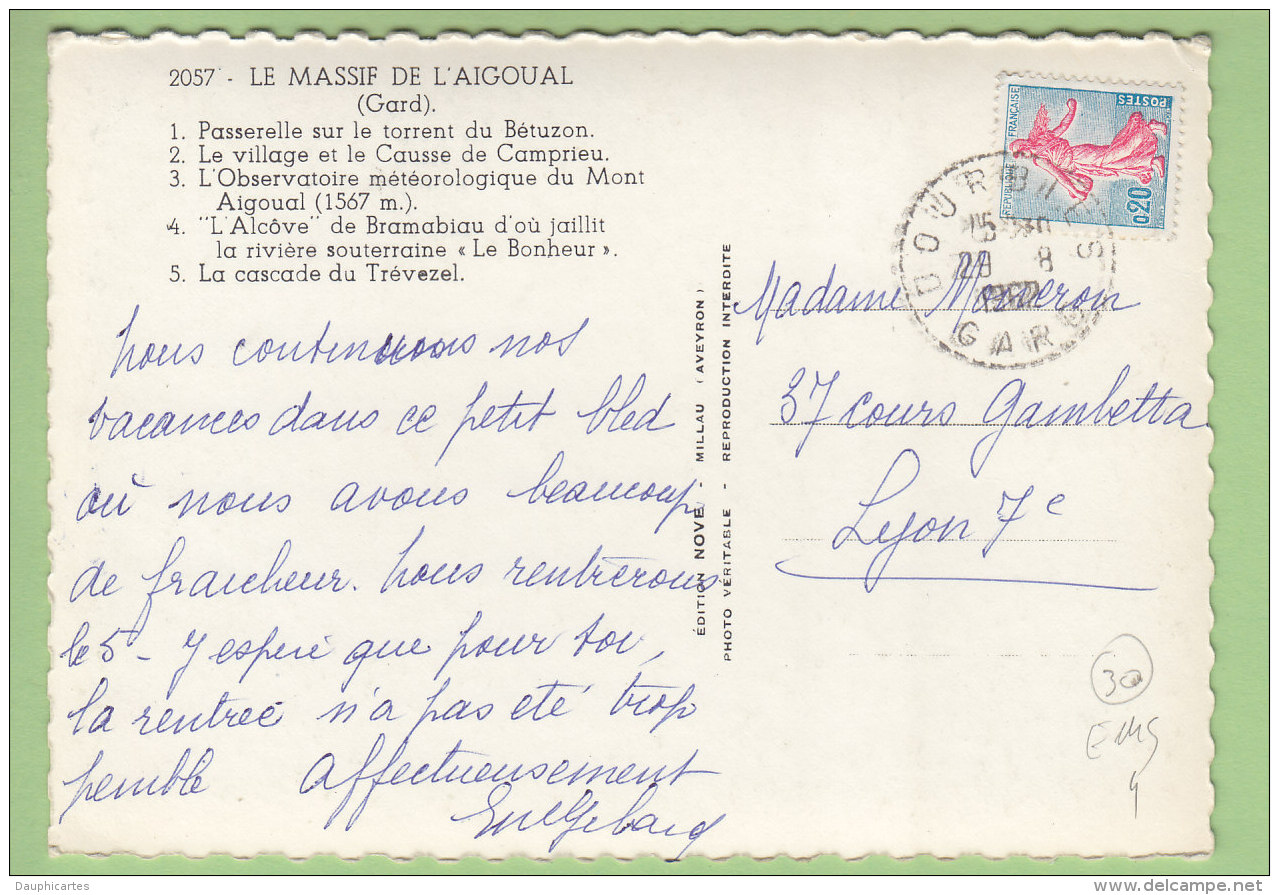 2057 - LE MASSIF DE L'AIGOUAL
(Gard).
1. Passerelle sur le torrent du Bétuzon.
2. Le village et le Causse de Camprieu.
3. L'Observatoire météorologique du Mont
Aigoual (1567 m.).
4. "L'Alcôve" de Bramabiau d'où jaillit
la rivière souterraine « Le Bonheur ».
5. La cascade du Trévezel.
Nous continuons nos
vacances dans ce petit bled
où nous avons beaucoup
de fraicheur. Nous rentrerons
le 5 - J'espère que pour toi,
la rentrée n'a pas été trop
penible Affectueusement
ÉDITION NOVE - MILLAU (AVEYRON)
PHOTO VÉRITABLE - REPRODUCTION INTERDITE
REPUBLIQUE FRANÇAISE
POSTES
0,20
DOURBIES
15
28 8
GARD
Madame
37 cours Gambetta
Lyon 7e
30
Dauphicartes
www.delcampe.net